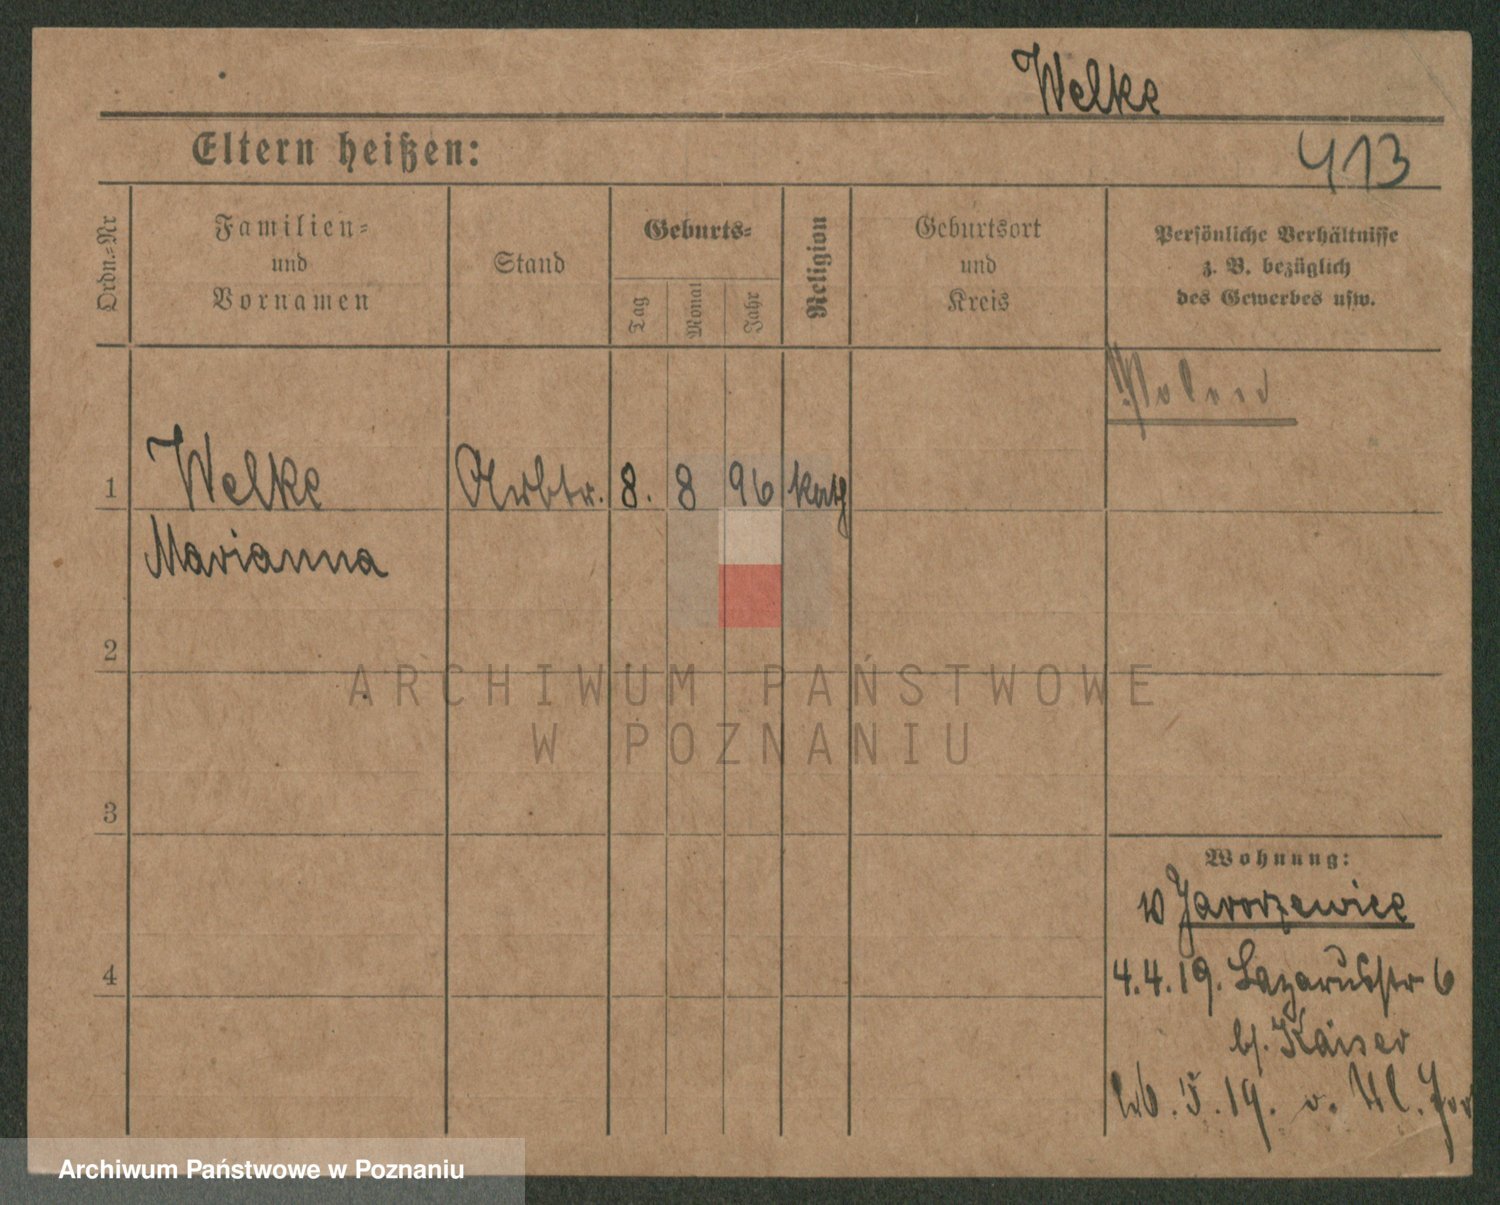 Welke
Eltern heißen:
413
Ordn.-Nr
Familien-
und
Vornamen
Stand
Geburts-
Tag
Monat
Jahr
Religion
Geburtsort
und
Kreis
Persönliche Verhältnisse
z. B. bezüglich
des Gewerbes usw.
1
Welke
Arbtr.
8.
8
96
kath
Marianna
2
ARCHIWUM PAŃSTWOWE
W POZNANIU
3
Wohnung:
Jaworzewice
4.4.19. Lazarusstr 6
b/. Kaiser
4
19.
Archiwum Państwowe w Poznaniu